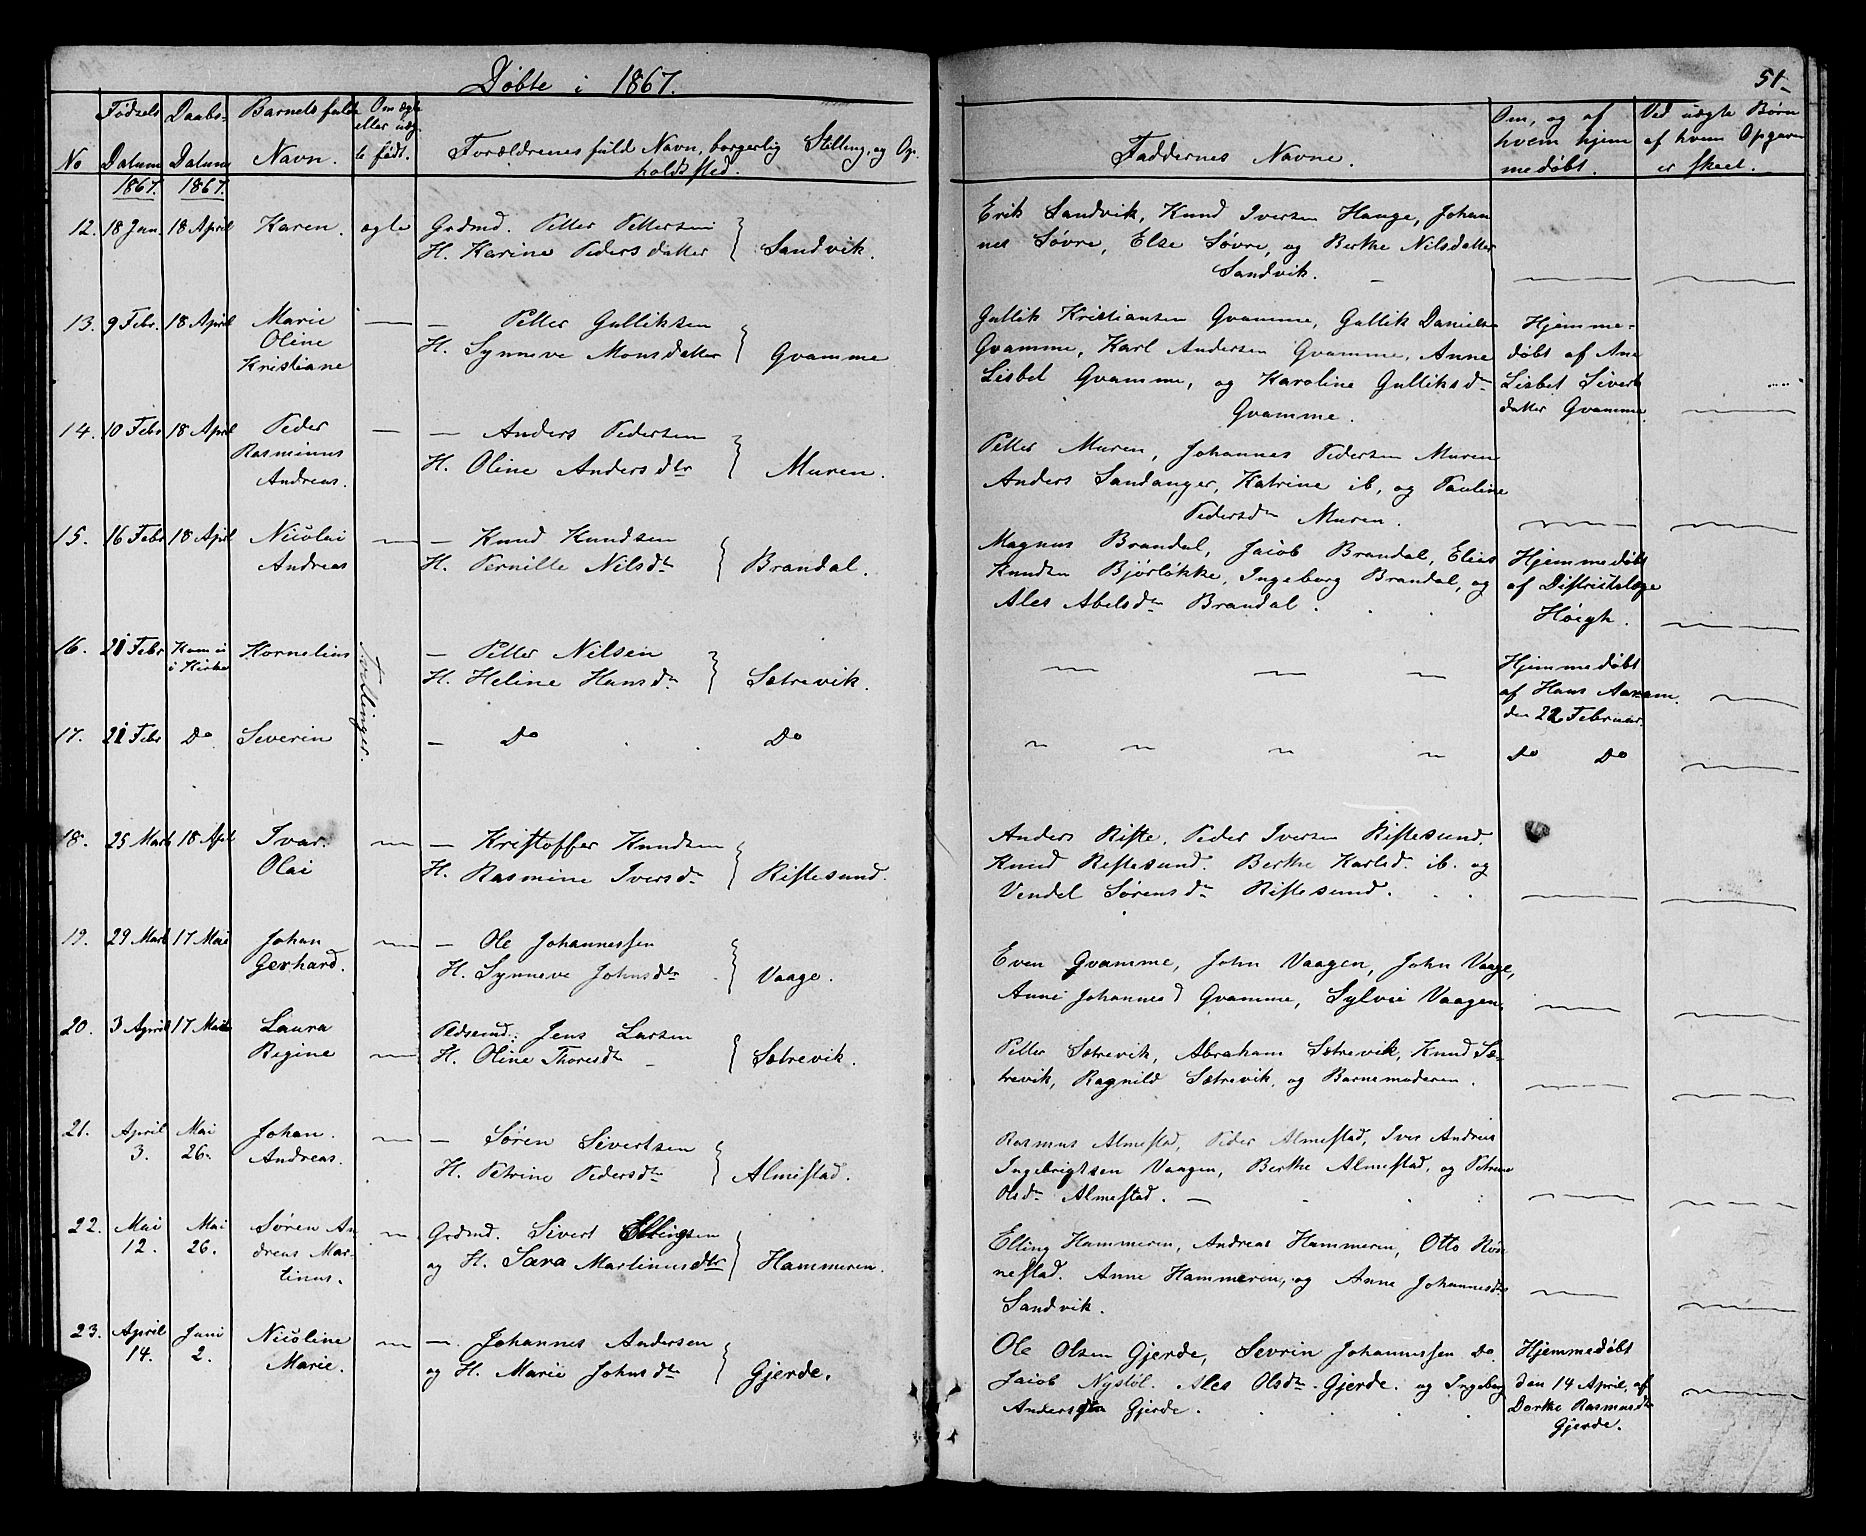 Döbte i 1867.
51-
No
Fødsels Datum
Daabs- Datum
Barnets fulde Navn.
Om ægte eller uæg- te født.
Forældrenes fuld Navn, borgerlig Stilling, og Op- holdssted.
Faddernes Navne.
Om, og af hvem hjem medøbt.
Ved uægte Børn af hvem Opgaven er skeet.
1867. 1867.
12. 18 Jan. 18 April Karen. ægte Grdmd. Petter Pettersen
H. Karine Pedersdatter } Sandvik.
Erik Sandvik, Knud Iversen Hauge, Johan
nes Søvre, Else Søvre, og Berthe Nilsdatter
Sandvik.
13. 9 Febr. 18 April Marie Oline Kristiane
— Petter Gulliksen
H. Synneve Monsdatter } Gvamme
Gullik Kristiansen Gvamme, Gullik Daniels
Gvamme, Karl Andersen Gvamme, Anne
Lisbet Gvamme, og Karoline Gulliksdr
Gvamme.
Hjemme-
døbt af Ane
Lisbet Sivert
datter Gvamme
14. 10 Febr 18 April Peder Rasminus Andreas.
— Anders Pedersen
H. Oline Andersdtr } Muren.
Petter Muren, Johannes Pedersen Muren
Anders Sandanger, Katrine ib, og Pauline
Pedersdr Muren.
15. 16 Febr 18 April Nicolai Andreas
— Knud Knudsen
H. Pernille Nilsdr } Brandal.
Magnus Brandal, Jacob Brandal, Elias
Knudsen Bjørløkke, Ingeborg Brandal, og
Ales Abelsdr Brandal.
Hjemmedøbt
af Distriktslæge
Høigh.
16. 21 Febr Kom ei i Kirke Kornelius Tvillinger.
— Petter Nilsen
H. Heline Hansdr } Sætrevik.
Hjemmedøbt
af Hans Aaram
den 22 Februar.
17. 21 Febr Do Severin — Do Do
Do Do
18. 25 Marts 18 April Ivar Olai
— Kristoffer Knudsen
H. Rasmine Iversdr } Riflesund.
Anders Rifte, Peder Iversen Riftesund.
Knud Riftesund. Berthe Karlsd. ib. og
Vendel Sørensdr Riftesund.
19. 29 Marts 17 Mai Johan Gerhard.
— Ole Johannessen
H. Synneve Johnsdtr } Vaage.
Even Gvamme, John Vaagen, John Vaage,
Anne Johannesd Gvamme, Sylvie Vaagen.
20. 3 April 17 Mai Laura Regine
Jens Larsen
H. Oline Thoresdr } Sætrevik.
Petter Sætrevik, Abraham Sætrevik, Knud Sæ-
trevik, Ragnild Sætrevik, og Barnemoderen.
21. April 3. Mai 26. Johan Andreas.
— Søren Sivertsen
H. Petrine Pedersdr } Almestad.
Rasmus Almestad, Peder Almestad, Iver Andreas
Ingebrigtsen Vaagen, Berthe Almestad, og Petrine
Olsdr Almestad.
22. Mai 12. Mai 26. Søren An- dreas Mar- tinus.
Grdmd. Sivert Ellingsen
og H. Sara Martinusdtr } Hammeren.
Elling Hammeren, Andreas Hammeren, Otto Røn
nestad. Anne Hammeren, og Anne Johannesdtr
Sandvik.
23. April 14. Juni 2. Nicoline Marie.
—. Johannes Andersen
og H. Marie Johnsdr } Gjerde.
Ole Olsen Gjerde, Sevrin Johannessen Do.
Jacob Nystøl. Ales Olsdr Gjerde. og Ingebor
Andersdtr Gjerde.
Hjemmedøbt
den 14 April, af
Dorthe Rasmusdr
Gjerde.